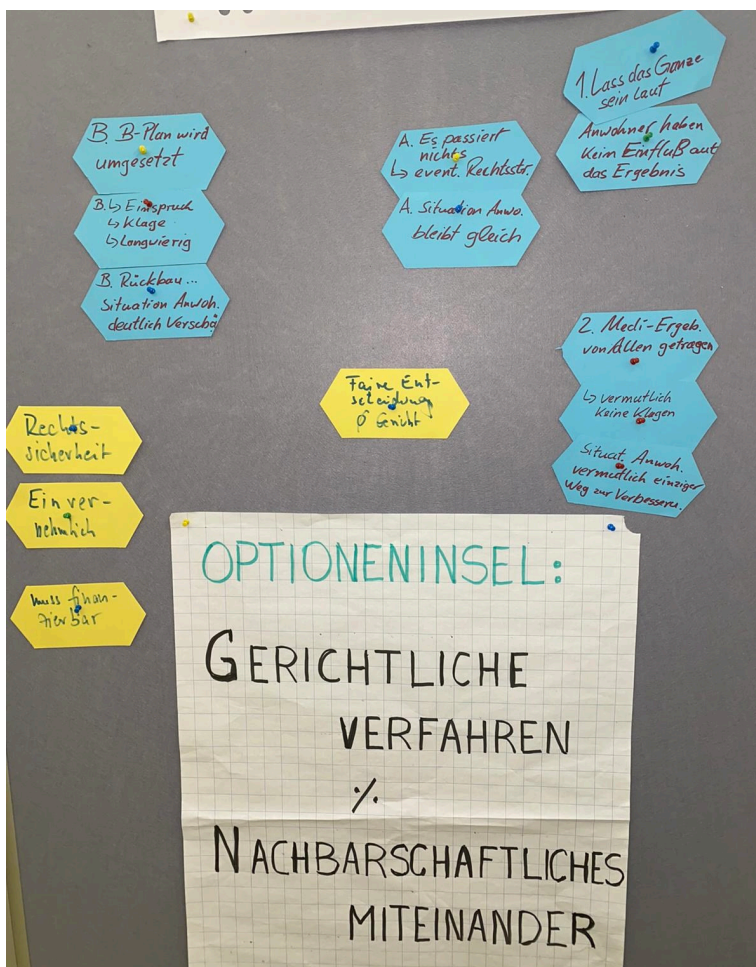 B. B-Plan wird
umgesetzt
B. ↳ Einspruch
↳ Klage
↳ Langwierig
B. Rückbau...
Situation Anwoh.
deutlich Verschä
A. Es passiert
nichts
↳ event. Rechtsstr.
A. Situation Anwo.
bleibt gleich
1. Lass das Ganze
sein laut
Anwohner haben
kein Einfluß auf
das Ergebnis
2. Medi-Ergeb.
von Allen getragen
↳ vermutlich
keine Klagen
Situat. Anwoh.
vermutlich einziger
Weg zur Verbesseru.
Faire Ent-
scheidung
Gericht
Rechts-
sicherheit
Einver-
nehmlich
muss finan-
zierbar
OPTIONENINSEL:
GERICHTLICHE
VERFAHREN
%
NACHBARSCHAFTLICHES
MITEINANDER